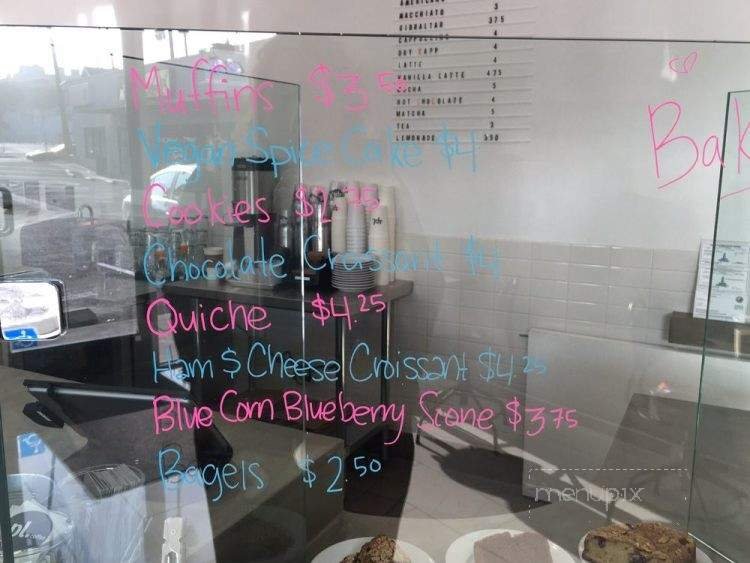 MACCHIATO 3
GIBRALTAR 3 75
CAPPUCCINO 4
LATTE 4
VANILLA LATTE 4 75
MOCHA 5
HOT CHOCOLATE 4
MATCHA 5
TEA 3
LEMONADE 3 50
Muffins $3.50
Vegan Spice Cake $4
Cookies $2.75
Chocolate Croissant $4
Quiche $4.25
Ham $ Cheese Croissant $4.25
Blue Corn Blueberry Scone $3.75
Bagels $2.50
Bak
menupix